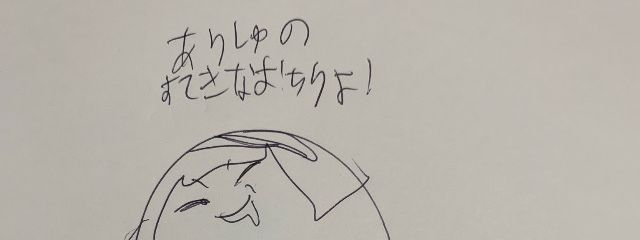 ありしゅの
すてきなおちりよ!